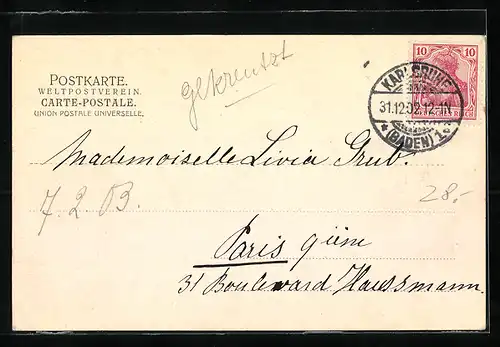 POSTKARTE.
WELTPOSTVEREIN.
CARTE-POSTALE.
UNION POSTALE UNIVERSELLE.
gekreutzt
10 10
KARLSRUHE
31.12.02.12-1N
*(BADEN)1
Mademoiselle Livia Grub.
7.2 B.
28.-
Paris
31 Boulevard Haussmann.